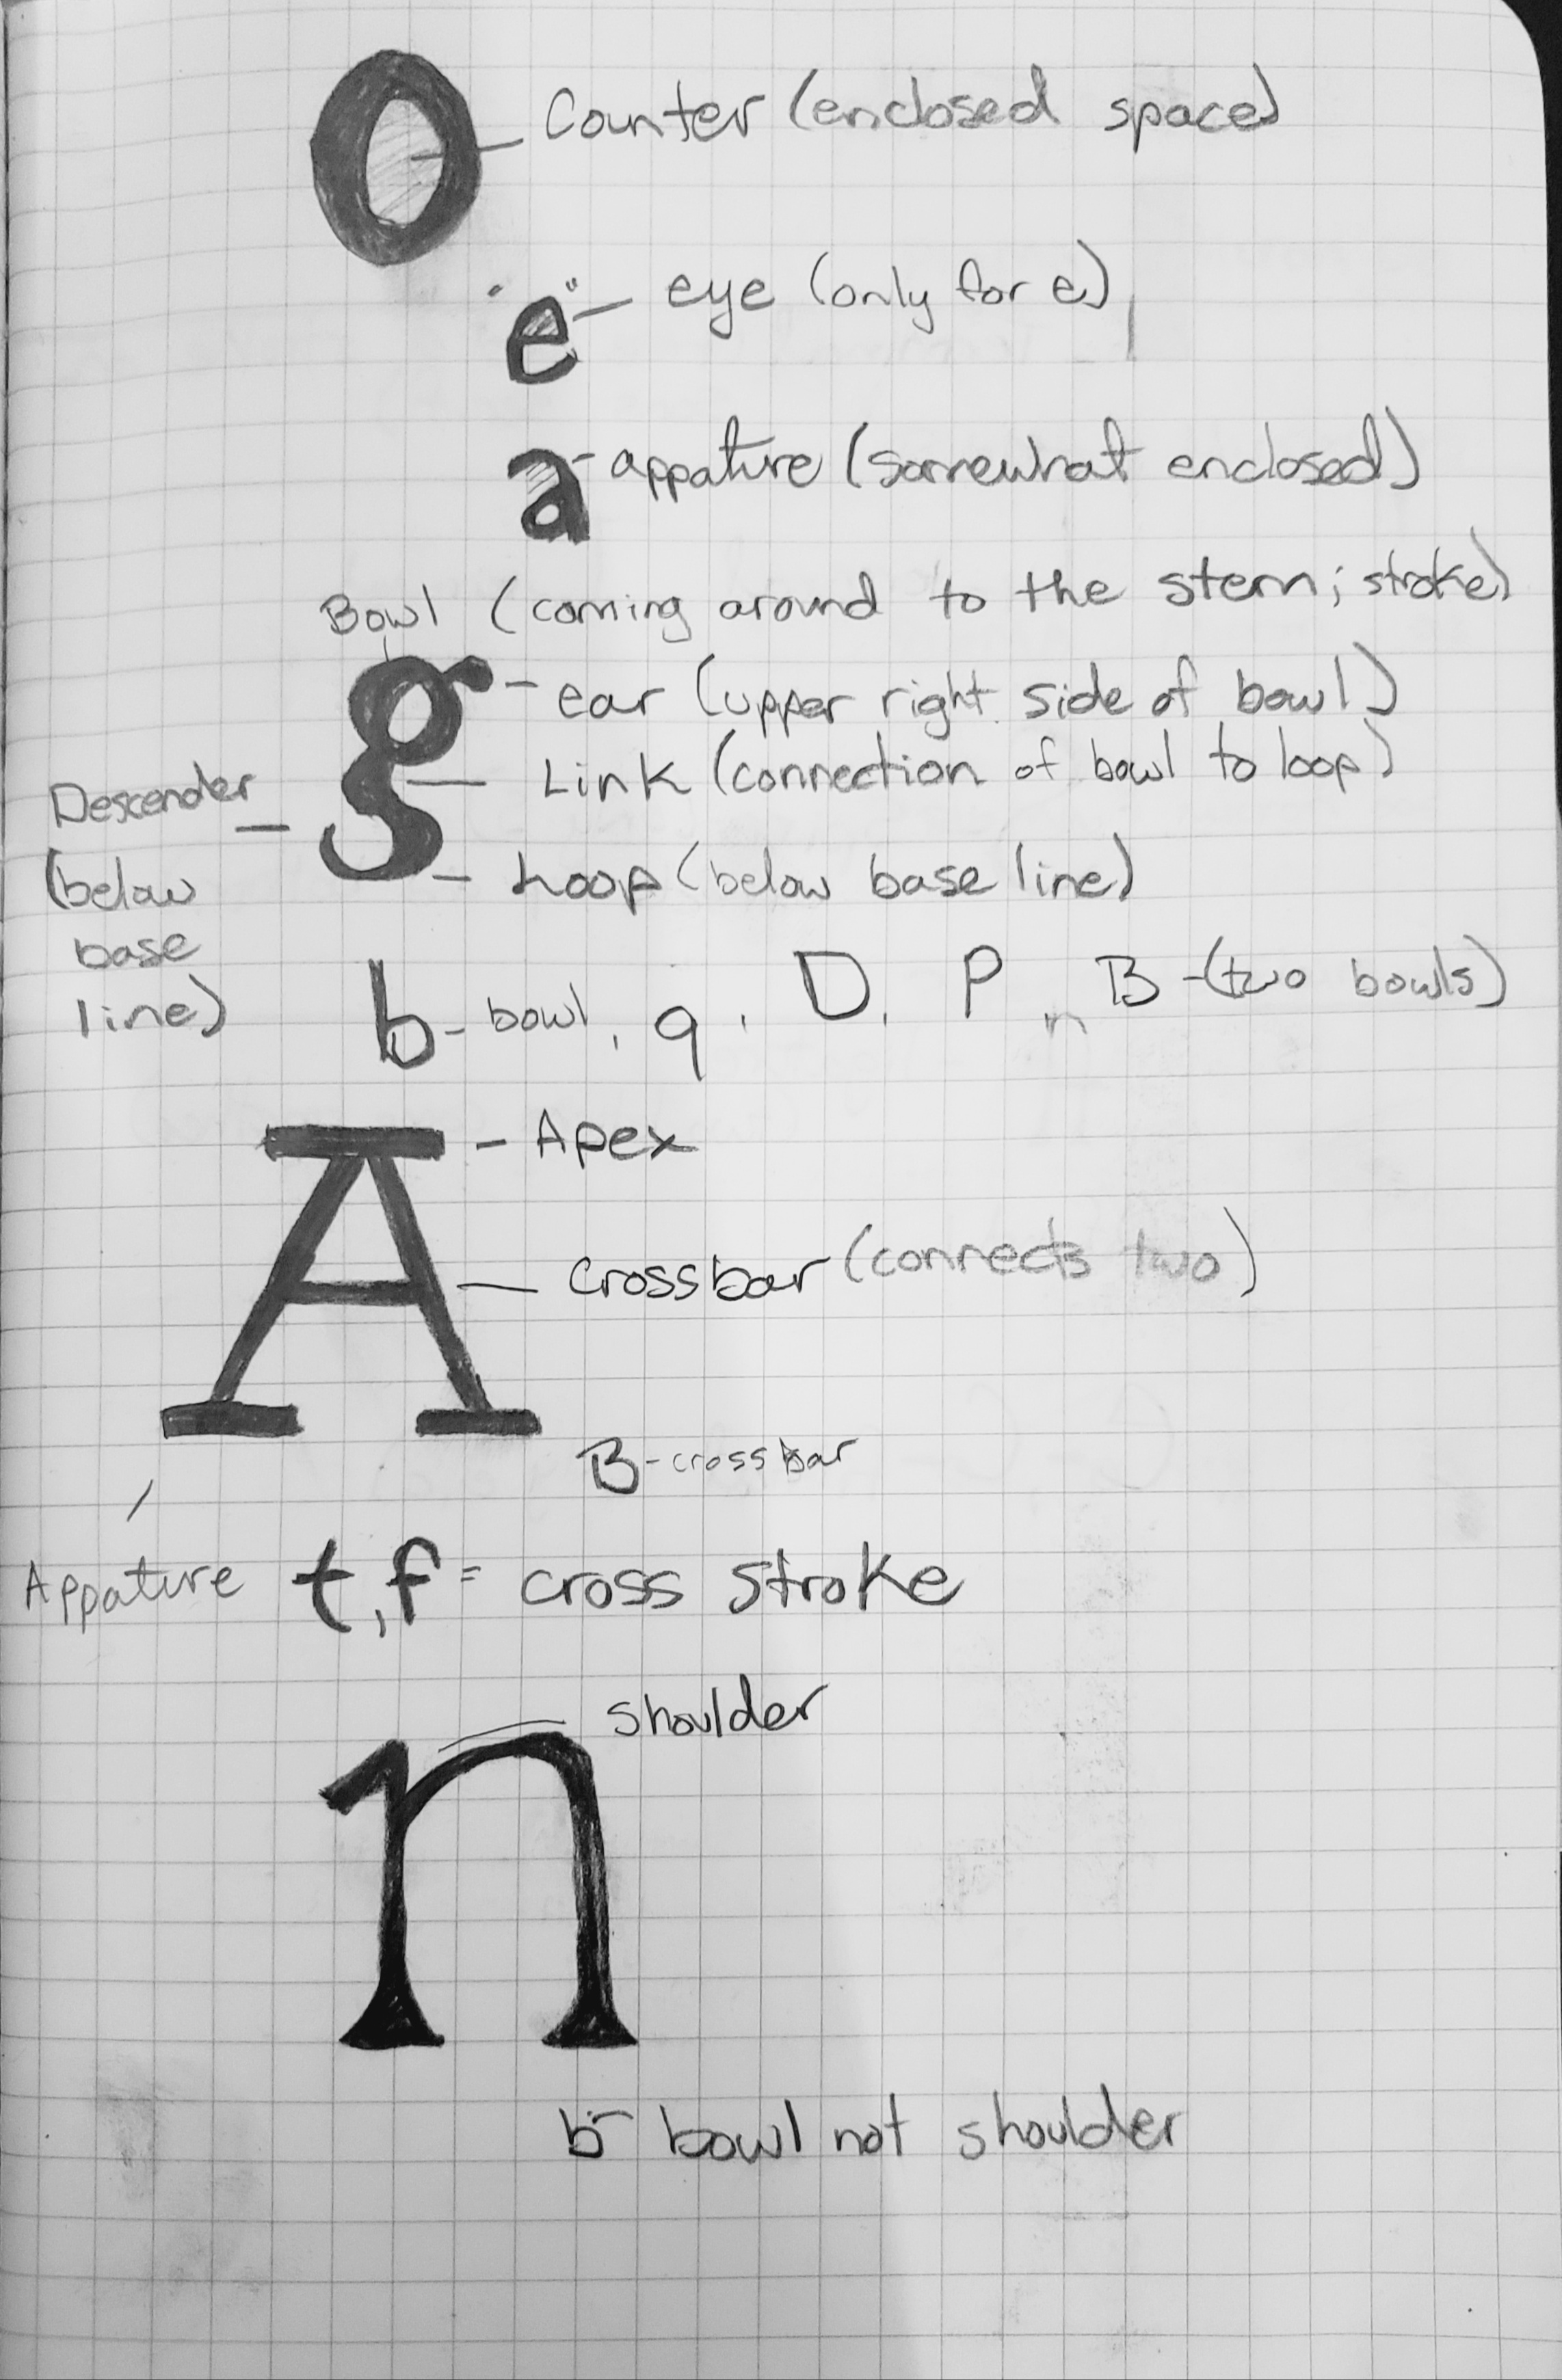 O - Counter (enclosed space)
e - eye (only for e)
a - appature (somewhat enclosed)
Bowl (coming around to the stem; stroke)
g - ear (upper right side of bowl)
Link (connection of bowl to loop)
Loop (below base line)
Descender -
(below
base
line)
b - bowl, q, D, P, B - (two bowls)
n
A - Apex
crossbar (connects two)
B - crossbar
Appature
t, f = cross stroke
n shoulder
b - bowl not shoulder